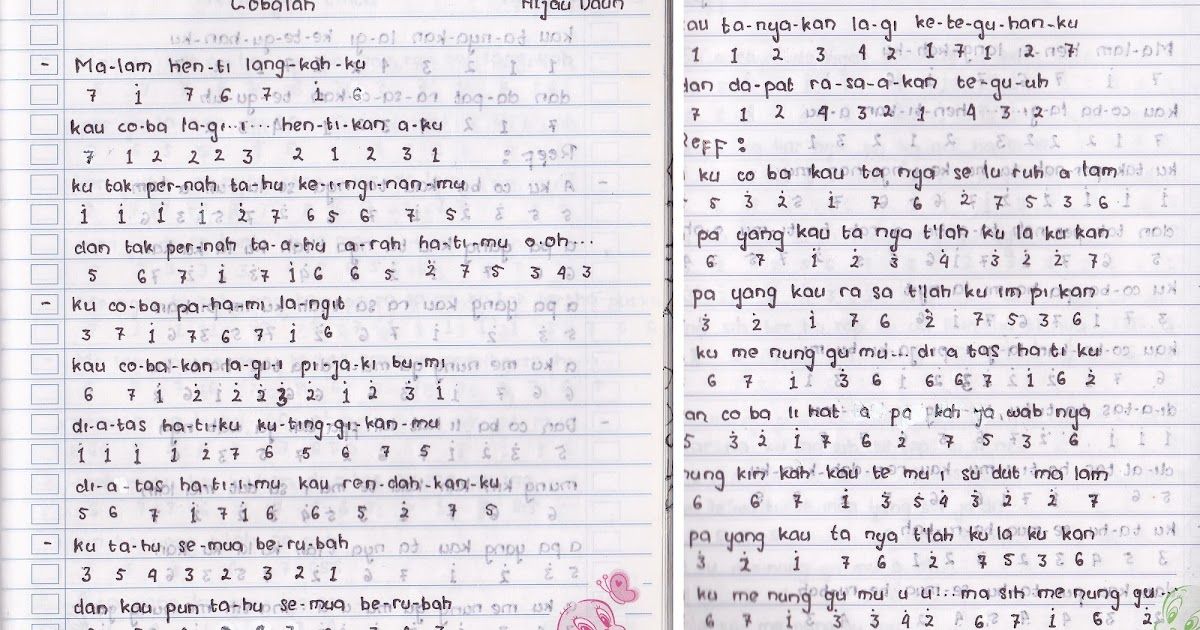 Cobalah Hijau Daun
- Ma-lam hen-ti lang-kah-ku
7 i̇ 7 6 7 i̇ 6
kau co-ba la-gi..i... hen-ti-kan a-ku
7 1 2 2 2 3 2 1 2 3 1
ku tak per-nah ta-hu ke-i-ngi-nan-mu
i̇ i̇ i̇ i̇ 2̇ 7 6 5 6 7 5
dan tak per-nah ta-a-hu a-rah ha-ti-mu o.oh...
5 6 7 i̇ 7 i̇ 6 6 5 2̇ 7 5 3 4 3
- ku co-ba pa-ha-mi la-ngit
3 7 i̇ 7 6 7 i̇ 6
kau co-ba-kan la-gi-i pi-ja-ki bu-mi
6 7 i̇ 2̇ i̇ 2̇ 2̇ 3̇ 2̇ i̇ 2̇ 3̇ i̇
di-a-tas ha-ti-ku ku-ting-gi-kan-mu
i̇ i̇ i̇ i̇ 2̇ 7 6 5 6 7 5
di-a-tas ha-ti-i-mu kau ren-dah-kan-ku
5 6 7 i̇ 7 i̇ 6 6 5 2̇ 7 5
- ku ta-hu se-mua be-ru-bah
3 5 4 3 2 3 2 1
dan kau pun ta-hu se-mua be-ru-bah
au ta-nya-kan la-gi ke-te-gu-han-ku
1 1 2 3 4 2 1 7 1 2 7
dan da-pat ra-sa-a-kan te-gu-uh
7 1 2 4 3 2 1 4 3 2
Reff :
ku co ba kau ta nya se lu ruh a lam
5 3̇ 2̇ i̇ 7 6 2̇ 7 5 3 i̇ 6
pa yang kau ta nya t'lah ku la ku kan
6 7 i̇ 2̇ 3̇ 4̇ 3̇ 2̇ 2̇ 7
pa yang kau ra sa t'lah ku im pi kan
3̇ 2̇ i̇ 7 6 2̇ 7 5 3 6
ku me nung gu mu... di a tas ha ti ku
6 7 i̇ 3̇ 6 6 6 7 i̇ 6 2̇
an co ba li hat a pa kah ya wab nya
5 3̇ 2̇ i̇ 7 6 2̇ 7 5 3 6
mung kin kah kau te mu i su dut ma lam
6 6 7 i̇ 3̇ 5̇ 4̇ 3̇ 2̇ 2̇ 7
pa yang kau ta nya t'lah ku la ku kan
3̇ 2̇ i̇ 7 6 2̇ 7 5 3 3 6
ku me nung gu mu u u... ma sih me nung gu...
6 7 i̇ 3̇ 3̇ 4̇ 2̇ 6 7 i̇ 6 2̇